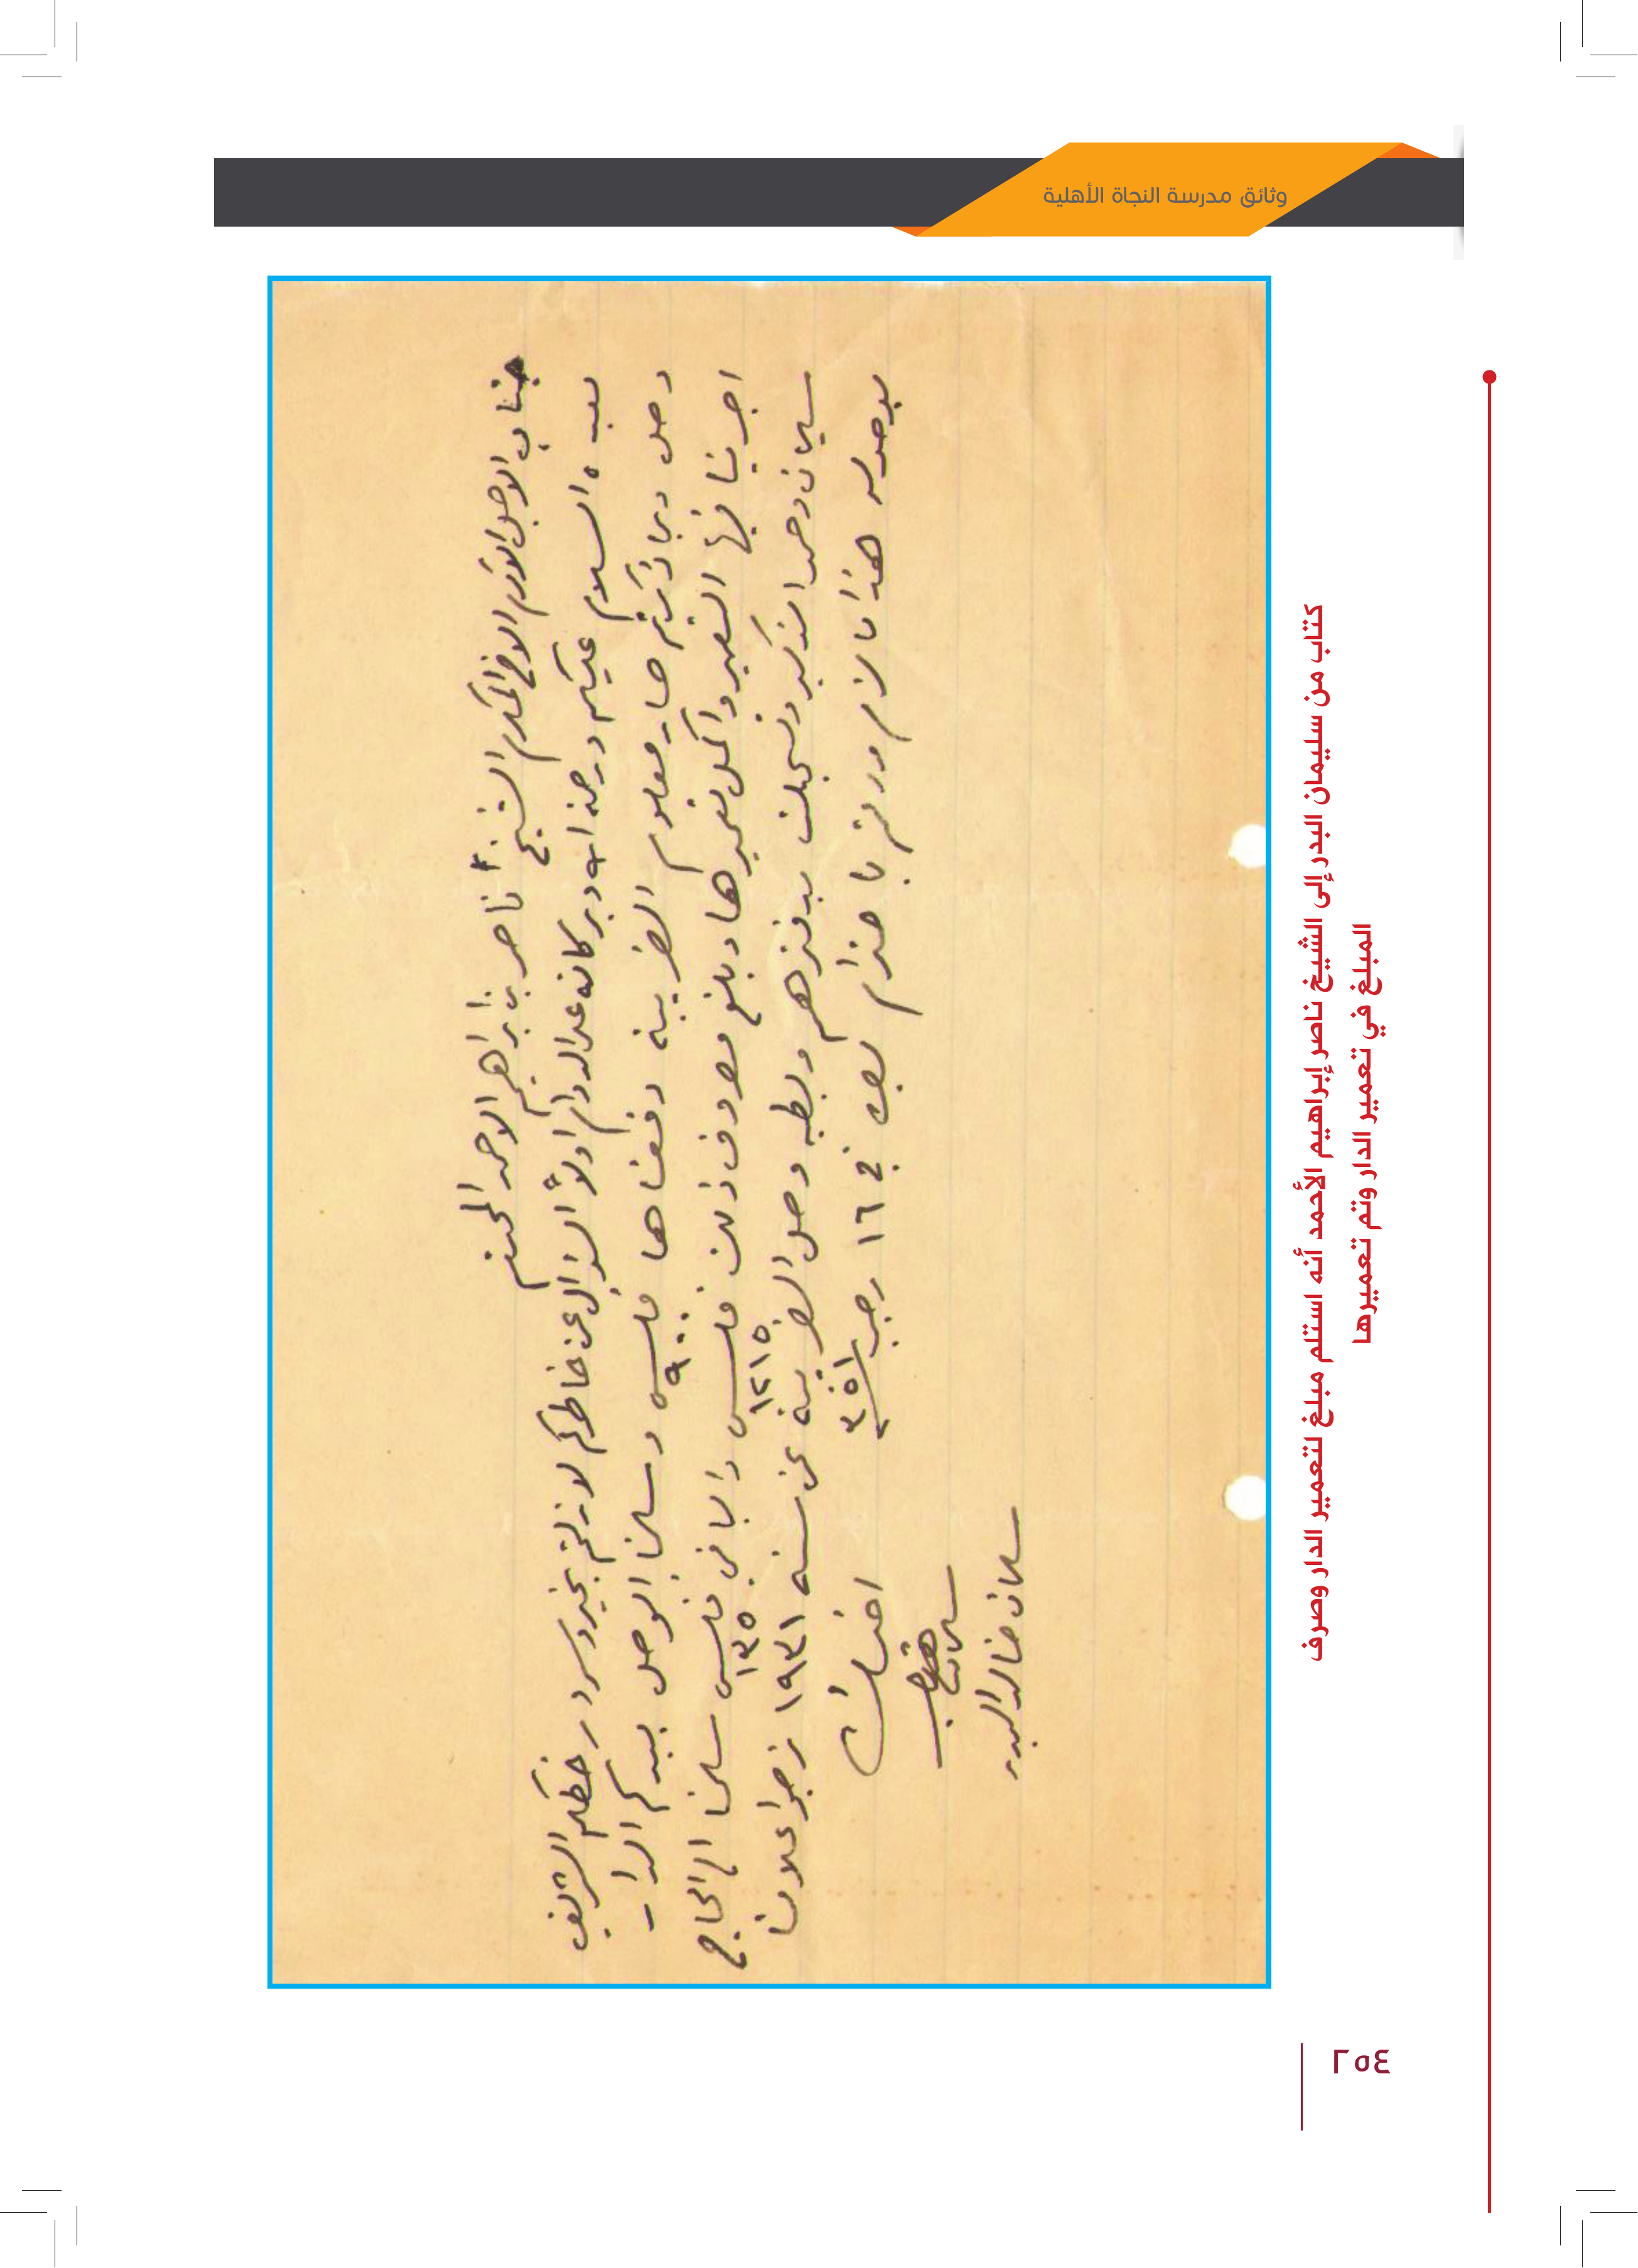 وثائق مدرسة النجاة الأهلية
جناب الاجل الاكرم الافخم المكرم الشيخ ناصر بن ابراهيم الاحمد المحترم
بعد السلام عليكم ورحمة الله وبركاته على الدوام اولاً السؤال عن خاطركم لا زلتم بخير وسرور خطكم الشريف
وصل وبما ذكرتم صار معلوم الضريبة دفعناها فلس ٩٠٠ وسلمنا الوصل بيدكم الدار
اجرينا فيها التعمير واكمل تعميرها وبلغ مصروف ذلك فلس ١٢١٥ والباقي فلس ١٣٥ سلمنا الى الحاج
سليمان وحمد وتسجلت بدفترهم وصل الضريبة عن سنة ١٩٣١ نرجوا اعلامنا
بوصوله هذا ما لزم ودمتم باحترام في ١٦ رجب ٣٥١
سليمان خالد البدر
كتاب من سليمان البدر إلى الشيخ ناصر إبراهيم الأحمد أنه استلم مبلغ لتعمير الدار وصرف
المبلغ في تعمير الدار وتم تعميرها
٢٥٤